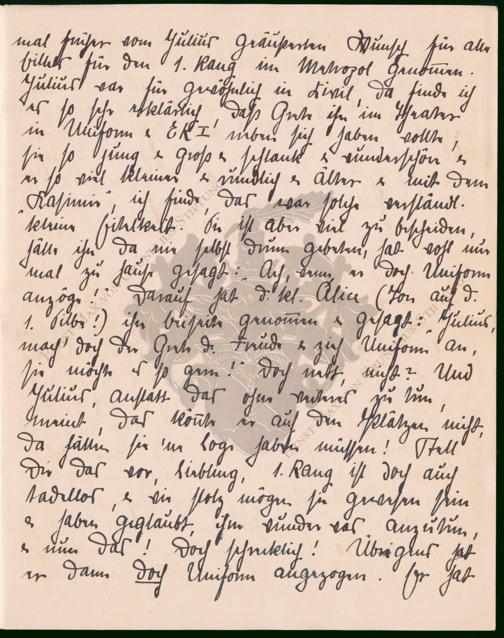 mal früher vom Julius geäußerten Wunsch für alle
billets für den 1. Rang im Metropol genom̄en.
Julius war für gewöhnlich in Civil, da finde ich
es so sehr erklärlich, daß Grete ihn im Theater
in Uniform & EK I, neben sich haben wollte,
sie so jung & groß & schlank & wunderschön &
er so viel kleiner & rundlich & älter & mit dem
"Kasimir", ich finde, das war solche verständl.
kleine Eitelkeit. Sie ist aber viel zu bescheiden,
hätte ihn da nie selbst drum gebeten, hat wohl nur
mal zu Hause gesagt: "Ach, wenn er doch Uniform
anzöge!" Darauf hat d. kl. Alice (Ton auf d.
1. Silbe!) ihn beiseite genom̄en & gesagt: "Julius,
mach' doch der Grete d. Freude & zieh Uniform an,
sie möchte es so gern!" Doch nett, nicht? Und
Julius, anstatt das ohne weiteres zu tun,
meint, das kön̄te er auf den Plätzen nicht,
da hätten sie 'ne Loge haben müssen! Stell
Dir das vor, Liebling, 1. Rang ist doch auch
tadellos, & wie stolz mögen sie gewesen sein
& haben geglaubt, ihm wunder was anzutun,
& nun das! Doch schrecklich! Übrigens hat
er dann doch Uniform angezogen. (Er hat